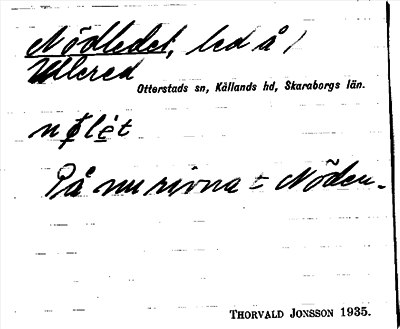 Nödledet, led å /
Ulered
Otterstads sn, Kållands hd, Skaraborgs län.
nǿlét
På nu rivna = Nöden.
THORVALD JONSSON 1935.